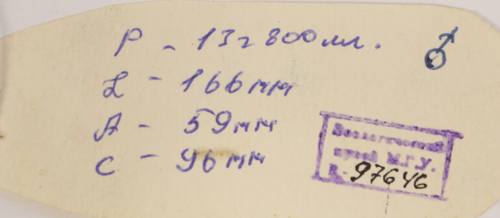 P - 13г 800мл. ♂
L - 166мм
A - 59мм
C - 96мм
Зоологический
музей М.Г.У.
R-97646